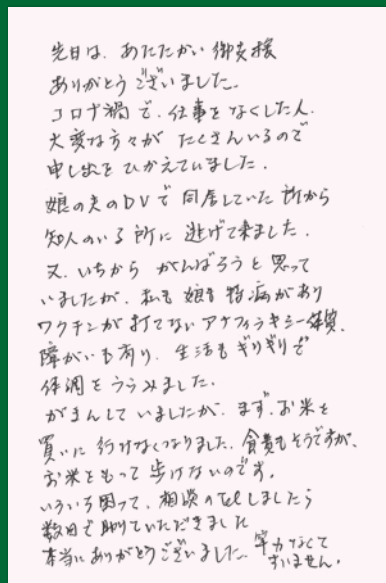 先日は、あたたかい御支援
ありがとうございました。
コロナ禍で、仕事をなくした人、
大変な方々が たくさんいるので
申し出を ひかえていました。
娘の夫のDVで 同居していた所から
知人のいる所に 逃げて来ました。
又、いちから がんばろうと思って
いましたが、私も娘も持病があり
ワクチンが打てないアナフィラキシー体質、
障がいも有り、生活もギリギリで
体調をうらみました。
がまんしていましたが、まず、お米を
買いに行けなくなりました。食費もそうですが、
お米をもって歩けないのです。
いろいろ困って、相談のTelしましたら
数日で助けていただきました
本当にありがとうございました。
筆力なくて
すいません。